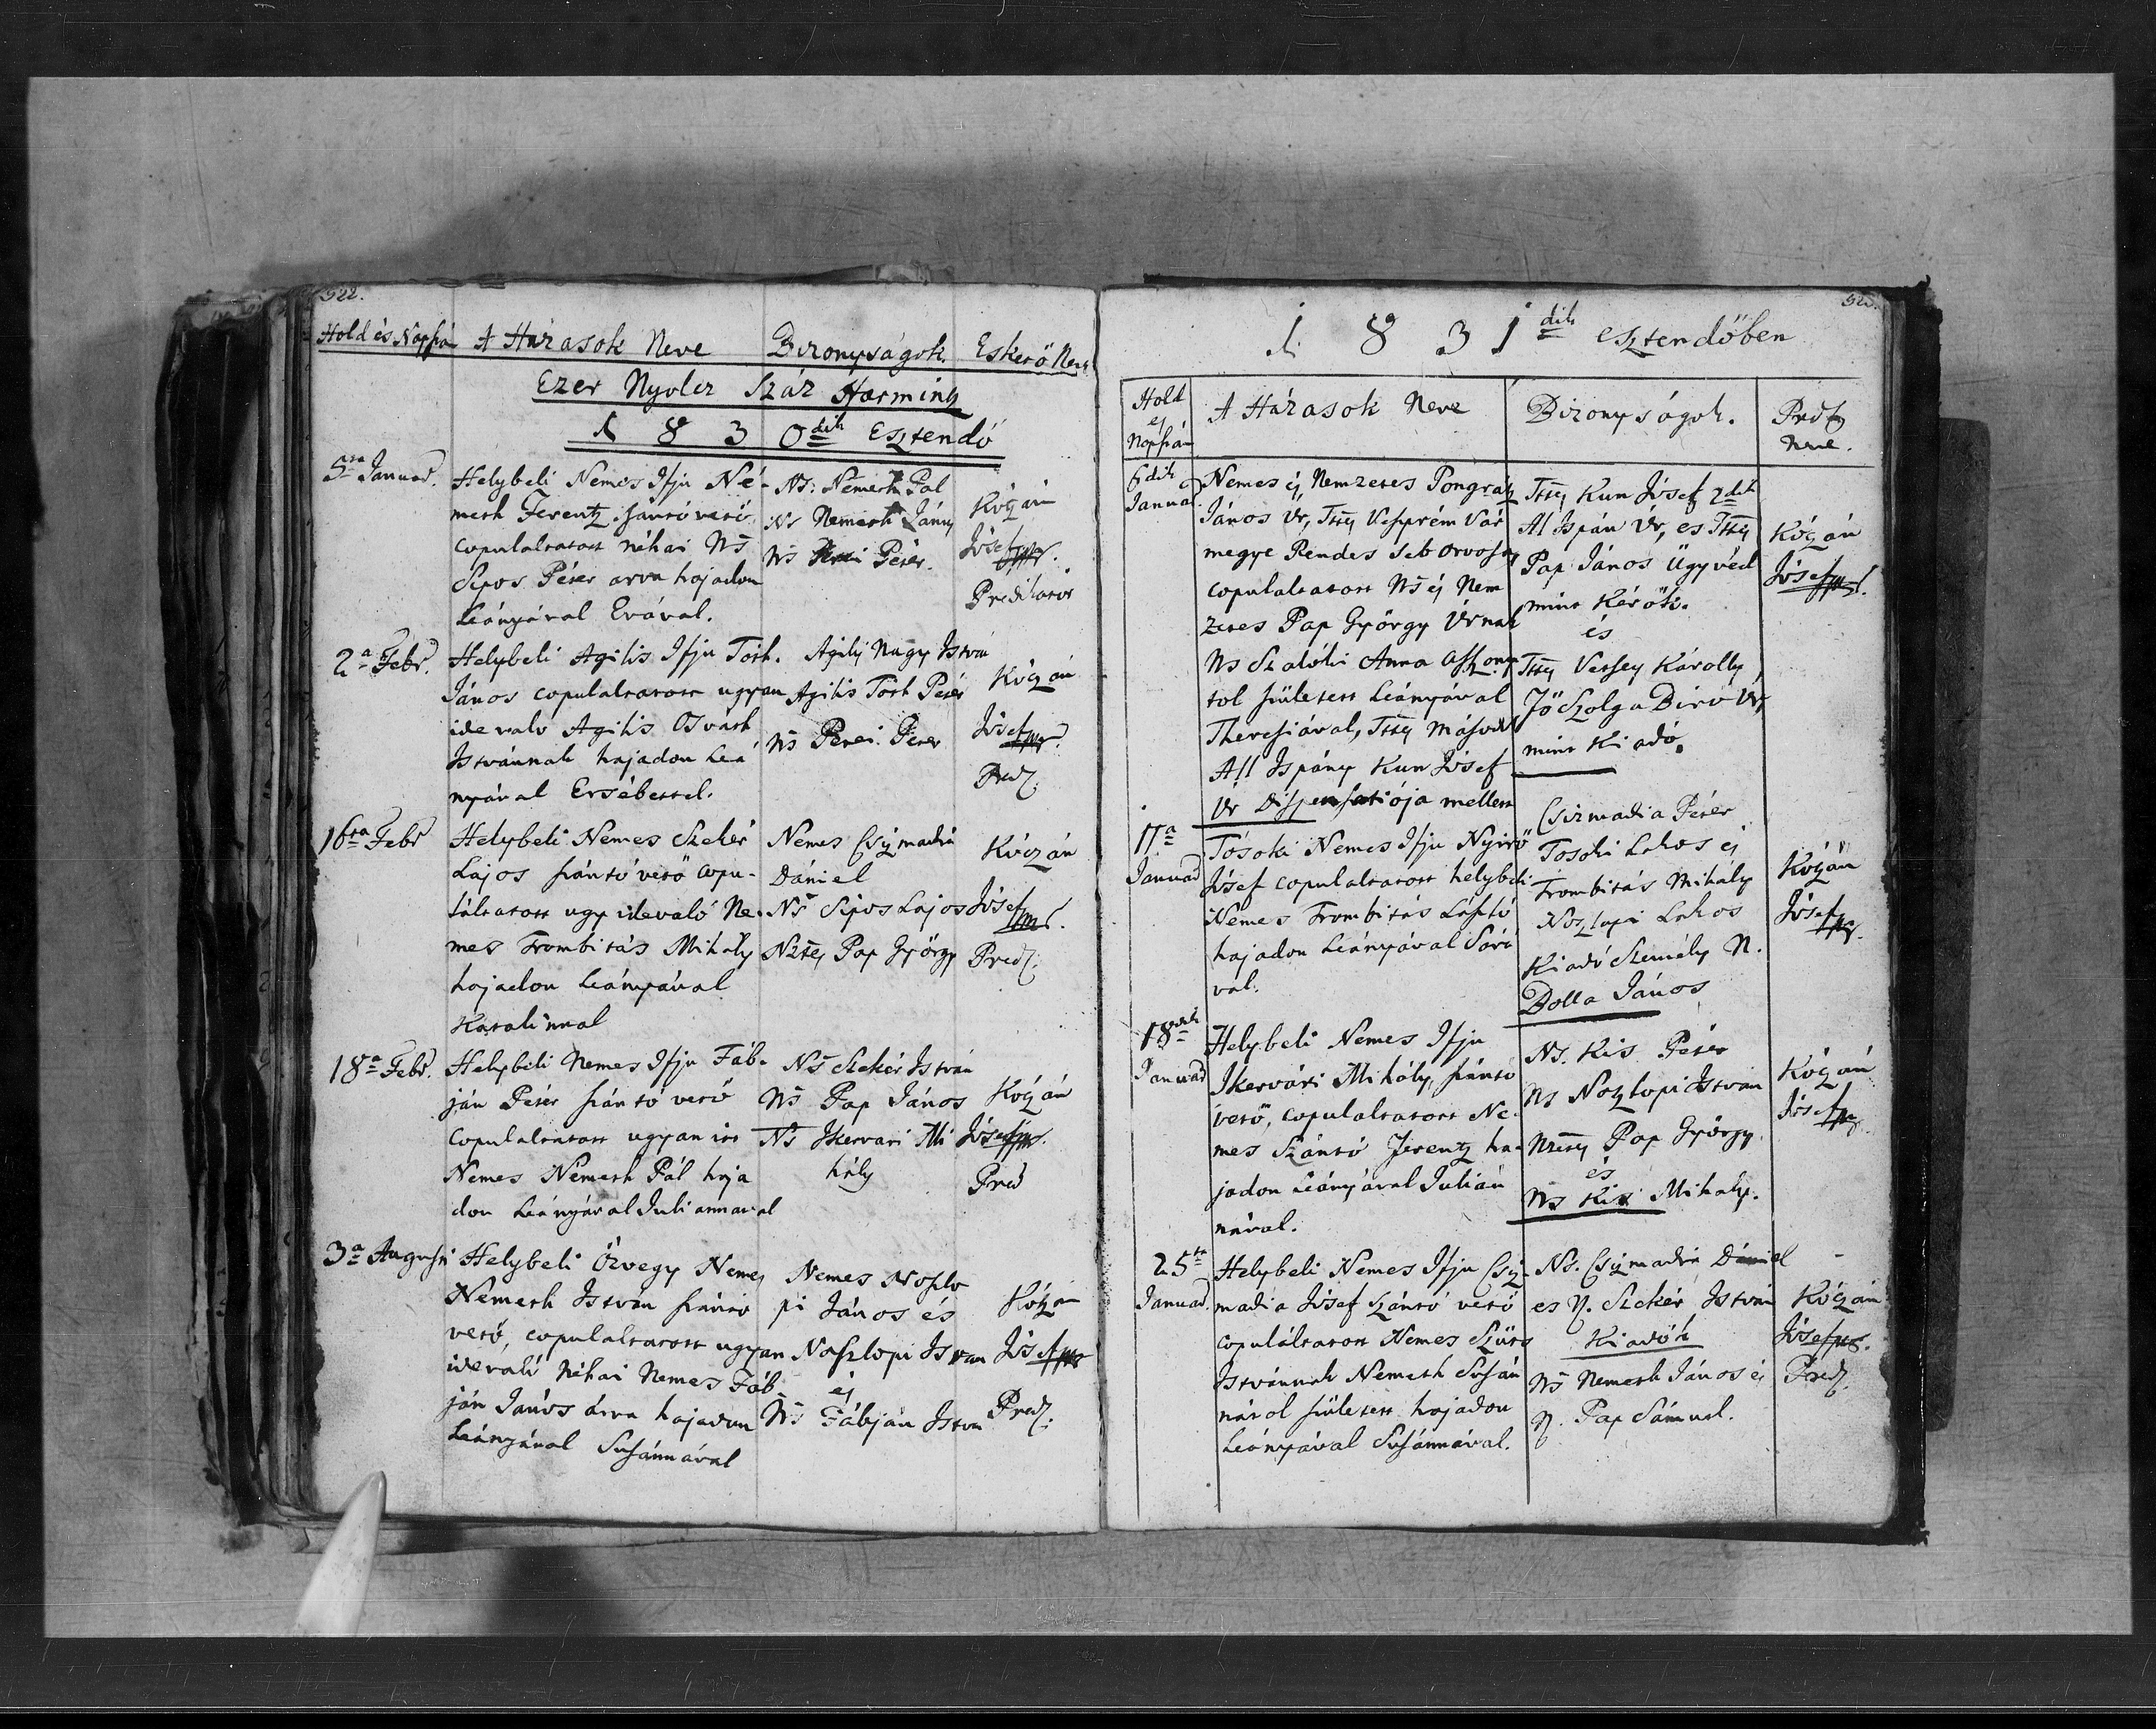 522.
Hold és Napján A Házasok Neve Bizonyságok. Esketö Neve
Ezer Nyolcz Száz Harmintz
1 8 3 0dik Esztendö
5a Januar.
Helybeli Nemes Ifju Né-
meth Ferentz. szantó vető
copuláltatott néhai Ns
Sipos Péter arva hajadon
Leányával Evával.
Ns: Németh Pal
Ns Nemeth János
Ns Péter.
Kótzán
Jósef mp.
Predikátor
2a Febr.
Helybeli Agilis Ifju Toth.
János copulaltatott ugyan
ide való Agilis Osváth
Istvánnak hajadon Leá
nyával Ersébettel.
Agilis Nagy István
Agilis Toth Peter
Ns Petei Peter
Kótzán
Jósef mp.
Pred.
16ta Febr
Helybeli Nemes Szekér
Lajos szántó vető copu-
láltatott ugy idevaló Ne-
mes Trombitás Mihály
hajadon Leányával
Katalinnal
Nemes Csizmadia
Dániel
Ns Sipos Lajos
Nztes Pap György
Kótzán
Jósef mp.
Pred.
18a Febr.
Helybeli Nemes Ifju Fáb-
ján Péter szántó vető
copulaltatott ugyan itt
Nemes Németh Pál haja
don Leányával Juliannaval
Ns Szekér István
Ns Pap János
Ns Ikervari Mi
hály
Kótzán
Jósef mp.
Pred
3a Augusti
Helybeli Özvegy Nemes
Németh István szántó
vető, copulaltatott ugyan
idevaló Néhai Nemes Fáb-
ján János árva hajadon
Leányával Susánnával
Nemes Noszlo
pi János és
Noszlopi Istvan
és
Ns Fábján István
Kótzán
Jósef mp
Pred.
1 8 3 1dik esztendőben
Hold
és
Napján
A Házasok Neve
Bizonyságok.
Pred
neve.
6dik
Januar.
Nemes és Nemzetes Pongrátz
János Ur, Ttts Veszprém Vár
megye Rendes Seb orvosa
copulaltatott Ns és Nem
zetes Pap György Úrnak
Ns Szalóki Anna Aszony
tol született Leányával
Theresiával, Ttts Másod
All Ispány Kun Jósef
Ur Dispensatiója mellett
Ttts Kun Jósef 2dik
Al Ispán Úr, es Ttts
Pap János Ügyvéd
mint Kérők.
és
Ttts Vessey Károlly
Fő Szolga Biró Úr,
mint Kiadó.
Kótzán
Jósef mp.
17a
Januar
Tósoki Nemes Ifju Nyirő
Jósef copulaltatott helybeli
Nemes Trombitás László
hajadon Leányával Sárá
val.
Csizmadia Péter
Tosoki Lakos és
Trombitás Mihály
Noszlopi Lakos
Kiadó Személy N.
Bolla János
Kótzán
Jósef mp.
18dik
Januar
Helybeli Nemes Ifju
Ikervári Mihály, szántó
vető, copulaltatott Ne-
mes Szántó Ferentz ha-
jadon Leányával Julián
nával.
Ns. Kis Péter
Ns Noszlopi István
Nztes Pap György
és
Ns Kis Mihaly.
Kótzán
Jósef mp
25ta
Januar.
Helybeli Nemes Ifju Csiz-
madia Jósef szántó vető
copuláltatott Nemes Szüts
Istvánnak Németh Susán
nától született hajadon
Leányával Susánnával.
Ns. Csizmadia Dániel
es N. Szekér István
Kiadók
Ns Nemeth János és
N. Pap Sámuel.
Kótzán
Jósef mp.
Pred.